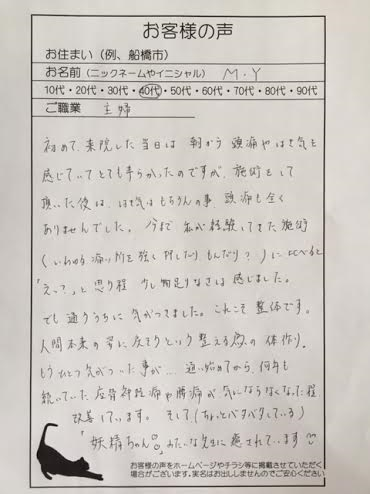 お客様の声
お住まい（例、船橋市）
お名前（ニックネームやイニシャル） M.Y
10代・20代・30代・40代・50代・60代・70代・80代・90代
ご職業 主婦
初めて、来院した当日は 朝から 頭痛やはき気を
感じていてとても辛らかったのですが、施術をして
頂いた後は、はき気はもちろんの事 頭痛も全く
ありませんでした。今まで 私が経験してきた施術
（いわゆる痛い所を強く押したり もんだり？）に比べると
「えっ？」と思う程 少し物足りなさは感じました。
でも 通ううちに 気がつきました。これこそ 整体です。
人間本来の姿に 戻そうという 整える為の 体作り。
もうひとつ気がついた事が… 通い始めてから、何年も
続いていた 座骨神経痛や腰痛が 気にならなくなった程
改善しています。そして（ちょっとバタバタしている）
「妖精ちゃん」みたいな先生に 癒されています
お客様の声をホームページやチラシ等に掲載させていただく
場合がございます。実名はお出ししませんのでご安心ください。